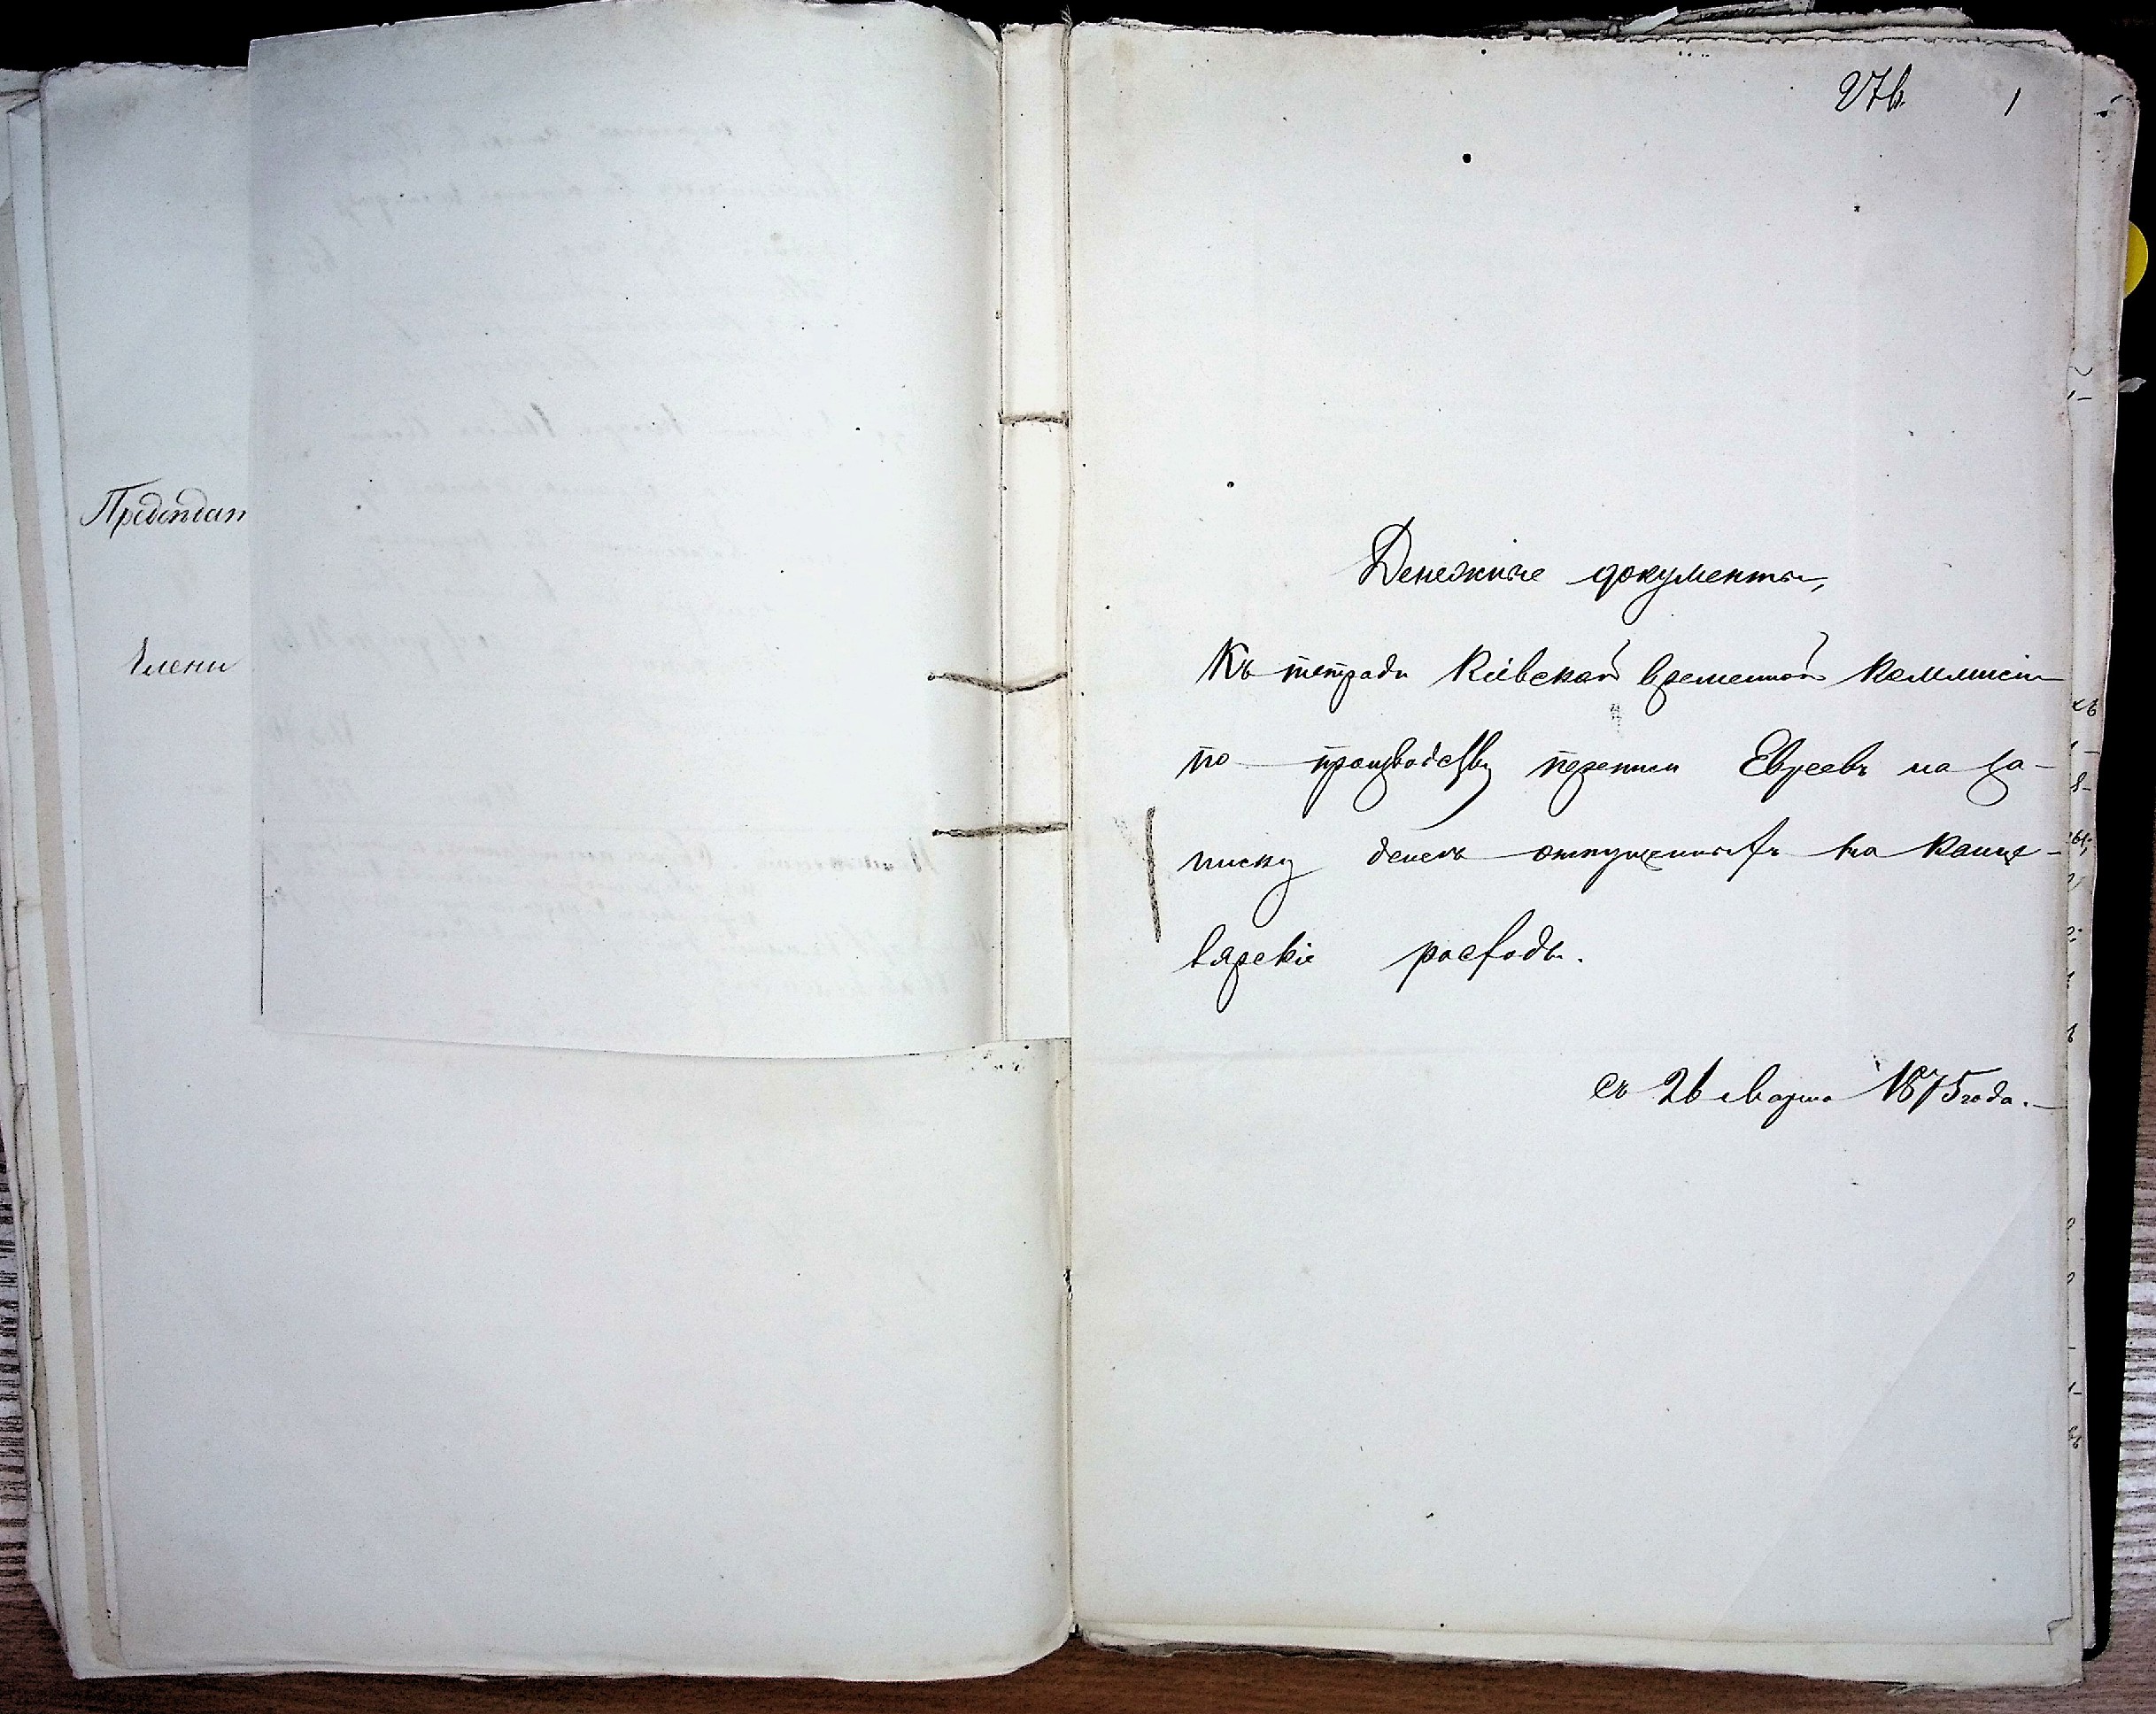 Предсѣдат
Члени
276.
1
Денежные документы,
Къ тетради Кіевской временной Коммисіи
по производству переписи Евреевъ на за-
писку денегъ отпущенныхъ на Канце-
лярскіе расходы.
съ 26 Марта 1875 года.